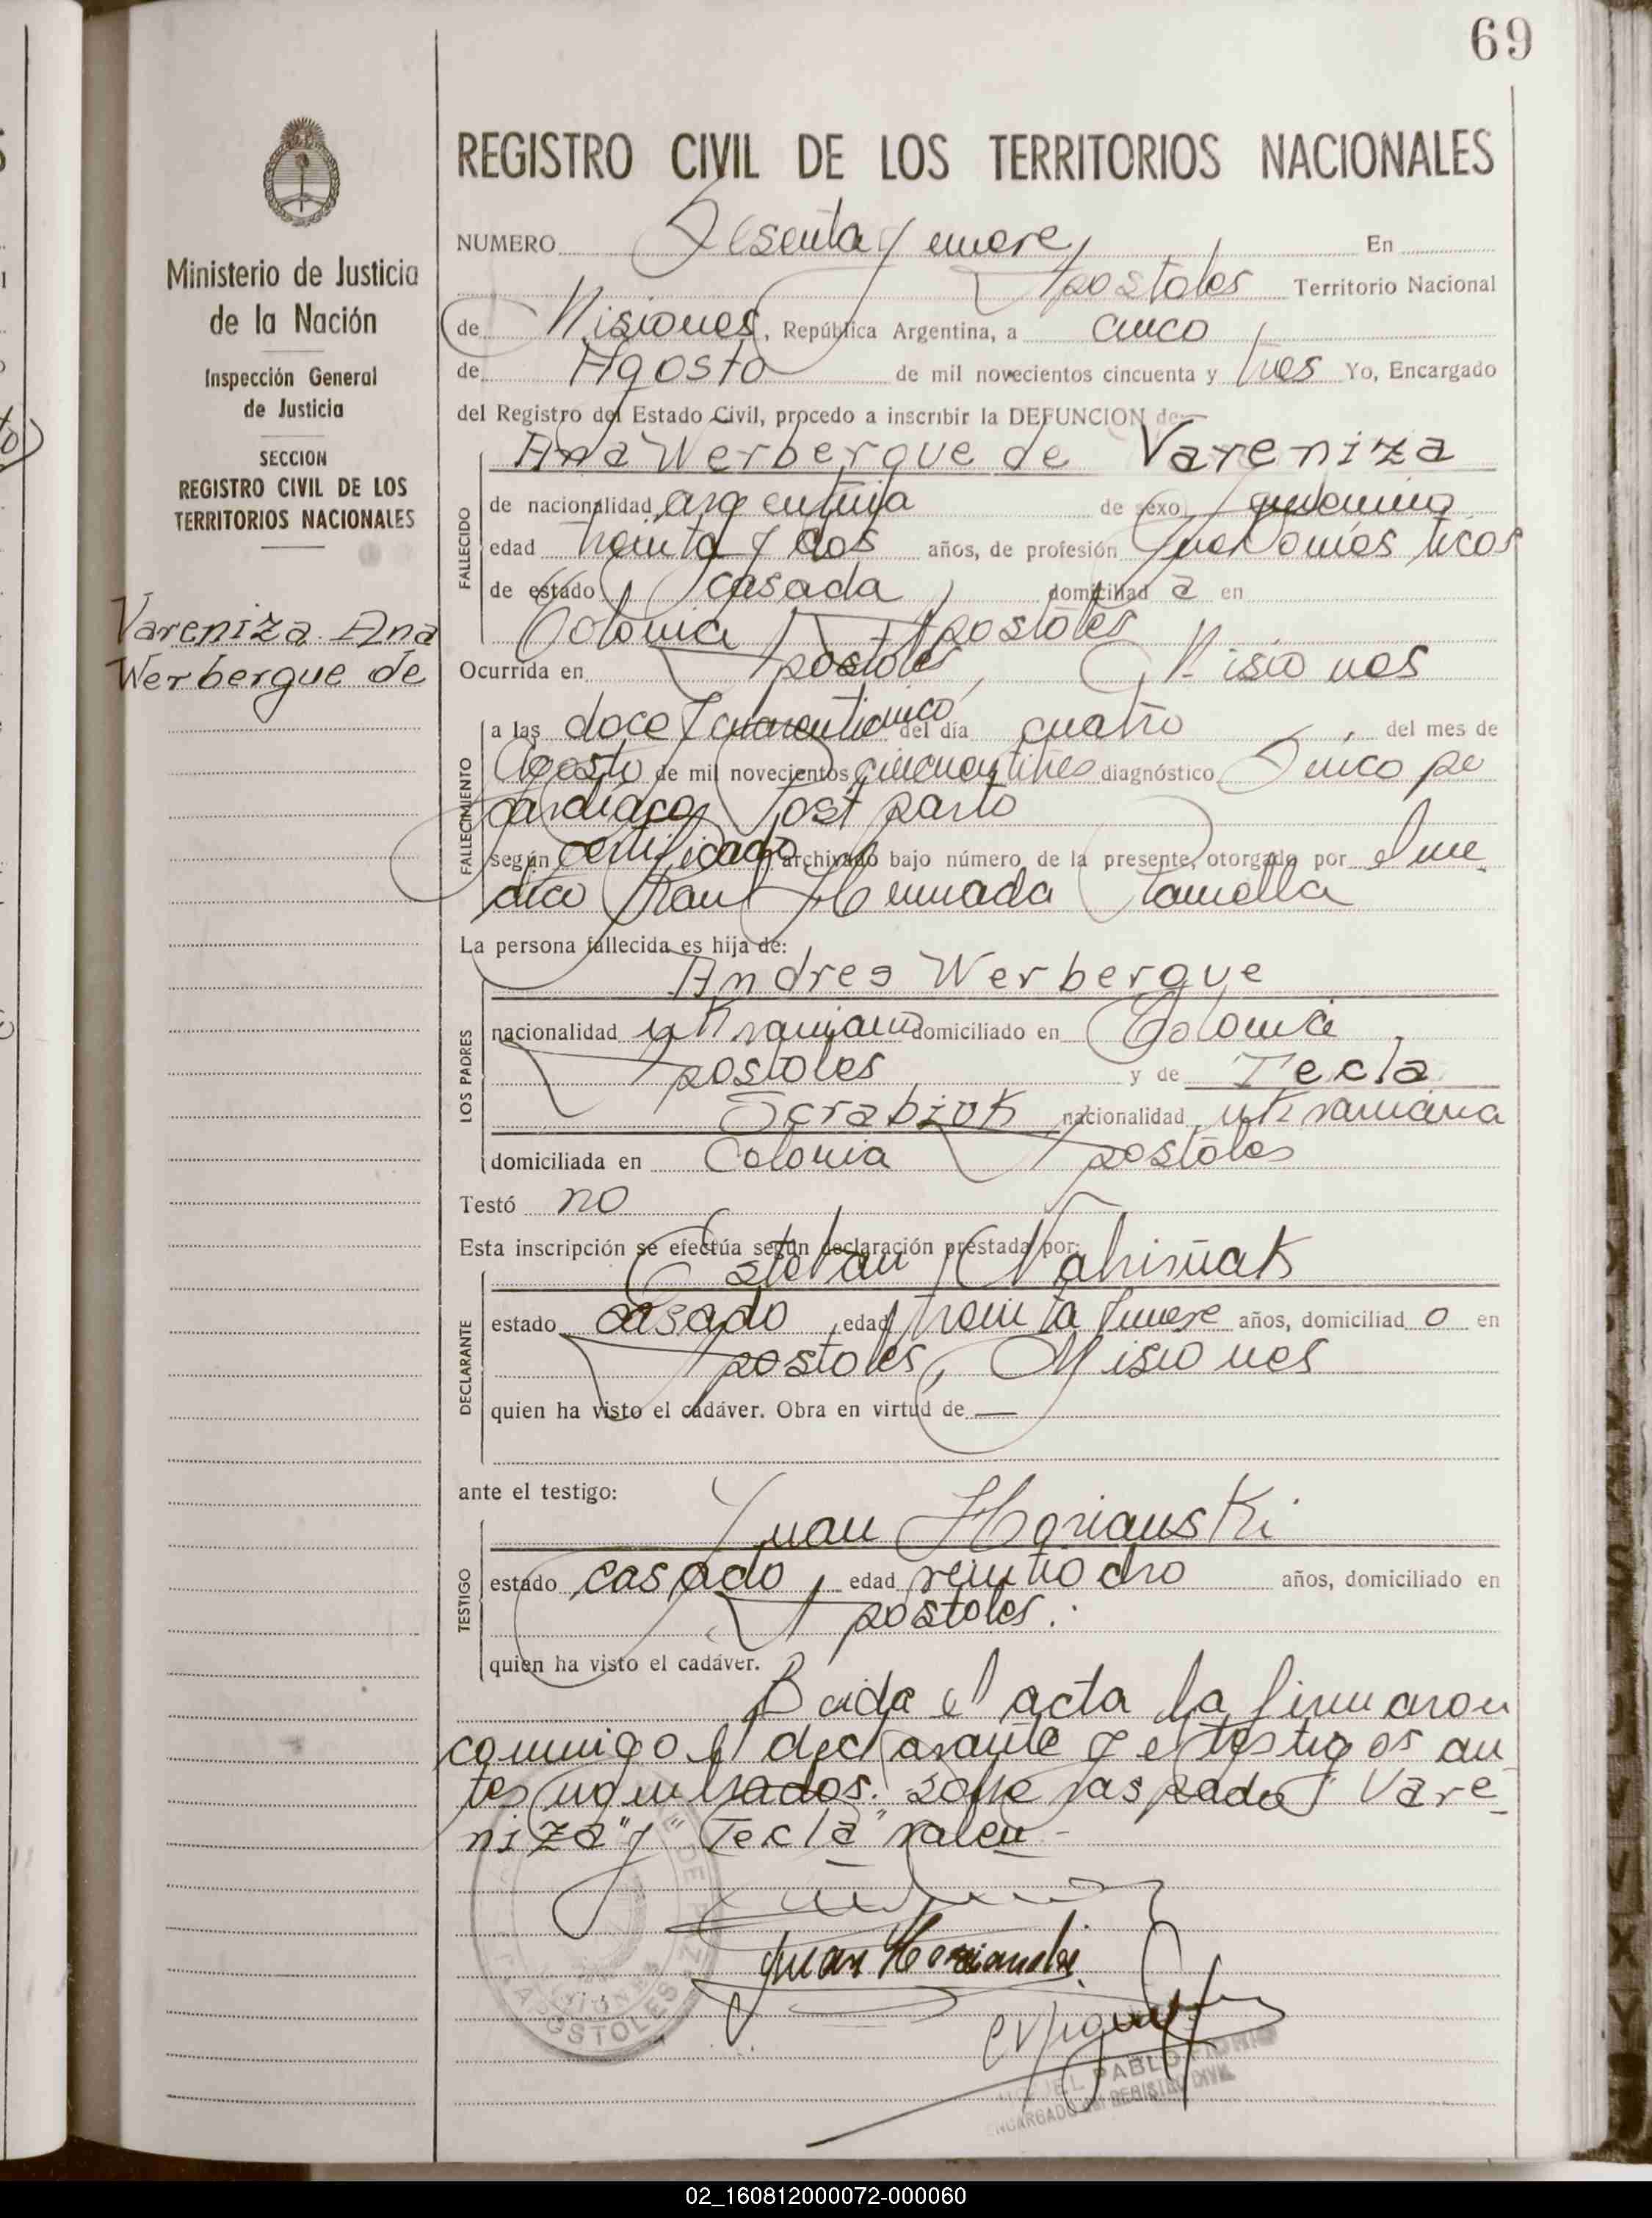 69
REGISTRO CIVIL DE LOS TERRITORIOS NACIONALES
Ministerio de Justicia
de la Nación
Inspección General
de Justicia
SECCION
REGISTRO CIVIL DE LOS
TERRITORIOS NACIONALES
Vareniza Ana
Werbergue de
NUMERO Sesenta y nueve En
Apostoles Territorio Nacional
de Misiones, República Argentina, a cinco
de Agosto de mil novecientos cincuenta y tres Yo, Encargado
del Registro del Estado Civil, procedo a inscribir la DEFUNCION de
FALLECIDO
Ana Werbergue de Vareniza
de nacionalidad argentina de sexo femenino
edad treinta y dos años, de profesión Domésticos
de estado casada domiciliad a en
Colonia Apostoles
Ocurrida en Apostoles, Misiones
FALLECIMIENTO
a las doce y cuarenticinco del día cuatro, del mes de
Agosto de mil novecientos cincuentitres diagnóstico Sincope
cardiaco Post parto
según certificado archivado bajo número de la presente, otorgado por el me
dico Raul
La persona fallecida es hija de:
LOS PADRES
Andres Werbergue
nacionalidad ukraniano domiciliado en Colonia
Apostoles y de Tecla
Scrabiuk nacionalidad ukraniana
domiciliada en Colonia Apostoles
Testó no
Esta inscripción se efectúa según declaración prestada por:
DECLARANTE
Esteban
estado casado, edad treinta y nueve años, domiciliad o en
Apostoles, Misiones
quien ha visto el cadáver. Obra en virtud de —
ante el testigo:
TESTIGO
Juan Horianski
estado casado, edad veintiocho años, domiciliado en
Apostoles.
quien ha visto el cadáver.
Leida el acta la firmaron
conmigo el declarante y el testigos an
tes nombrados. Sobre raspado "Vare-
niza" y "Tecla" valen -
Juan Horianski
APOSTOLES
PABLO
ENCARGADO del REGISTRO CIVIL
02_160812000072-000060